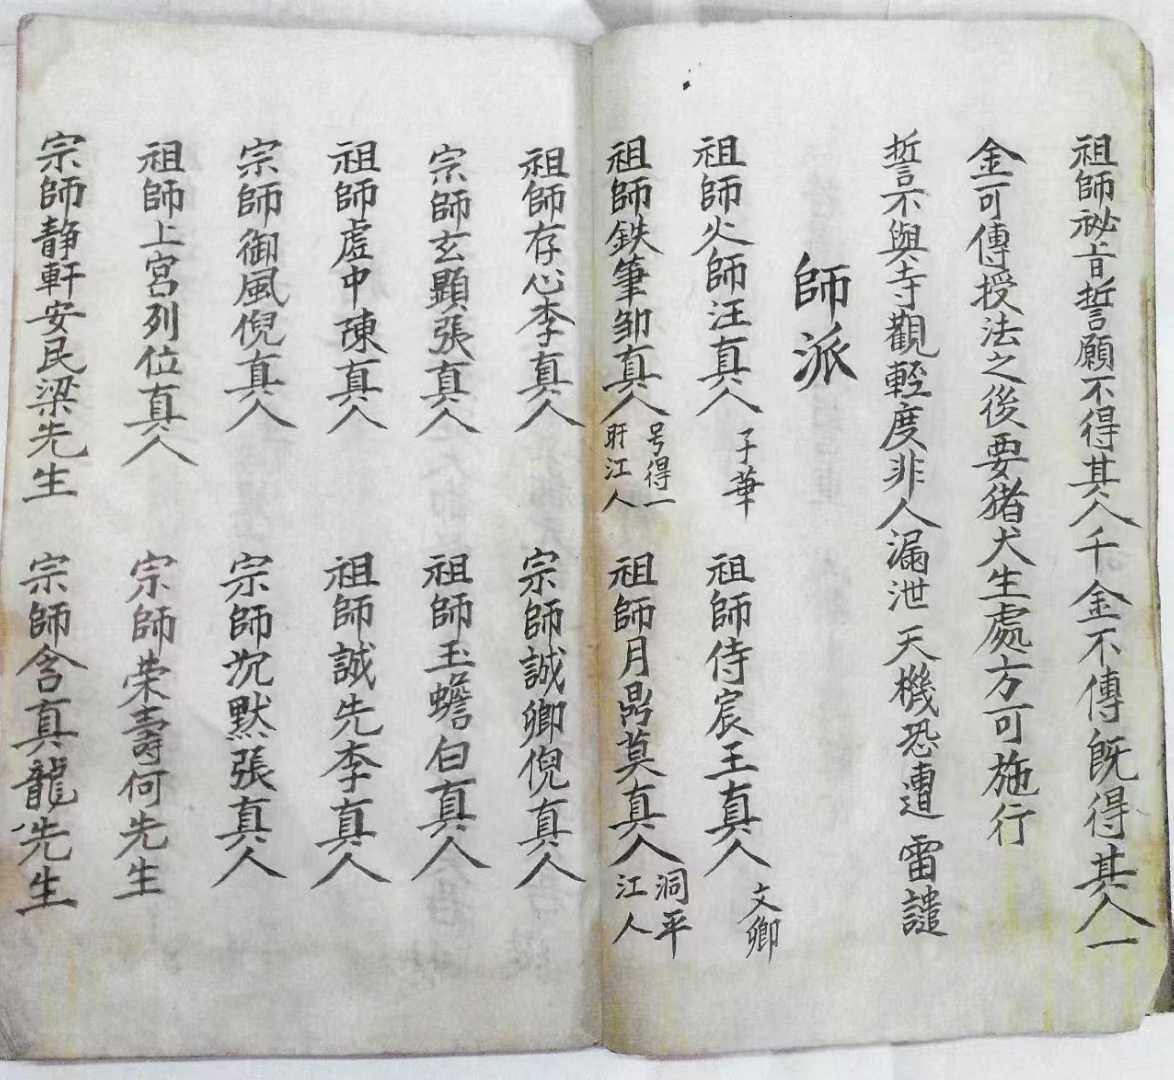 祖師祕旨誓願不得其人千金不傳既得其人一
金可傳授法之後要猪犬生處方可施行
誓不與寺觀輕度非人漏泄天機恐遭雷譴
師派
祖師火師汪真人 子華 祖師侍宸王真人 文卿
祖師鉄筆邹真人 号得一 盱江人 祖師月鼎莫真人 洞平 江人
祖師存心李真人 宗師誠卿倪真人
宗師玄顯張真人 祖師玉蟾白真人
祖師虛中陳真人 祖師誠先李真人
宗師御風倪真人 宗師沉默張真人
祖師上宮列位真人 宗師荣壽何先生
宗師静軒安民梁先生 宗師含真龍先生